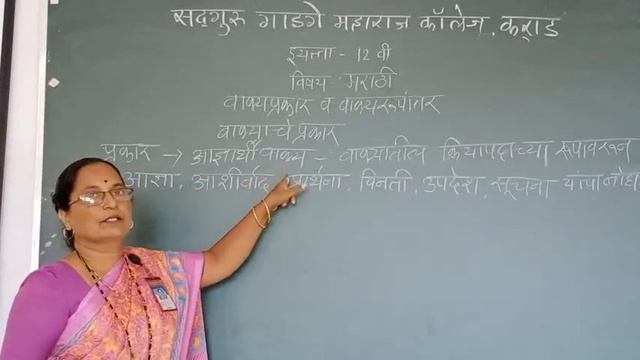 सदगुरु गाडगे महाराज कॉलेज, कराड
इयत्ता - 12 वी
विषय : मराठी
वाक्यप्रकार व वाक्यरूपांतर
वाक्याचे प्रकार
प्रकार → आज्ञार्थी वाक्य - वाक्यातील क्रियापदाच्या रूपावरून
आज्ञा, आशीर्वाद, प्रार्थना, विनती, उपदेश, सूचना यांचा बोध